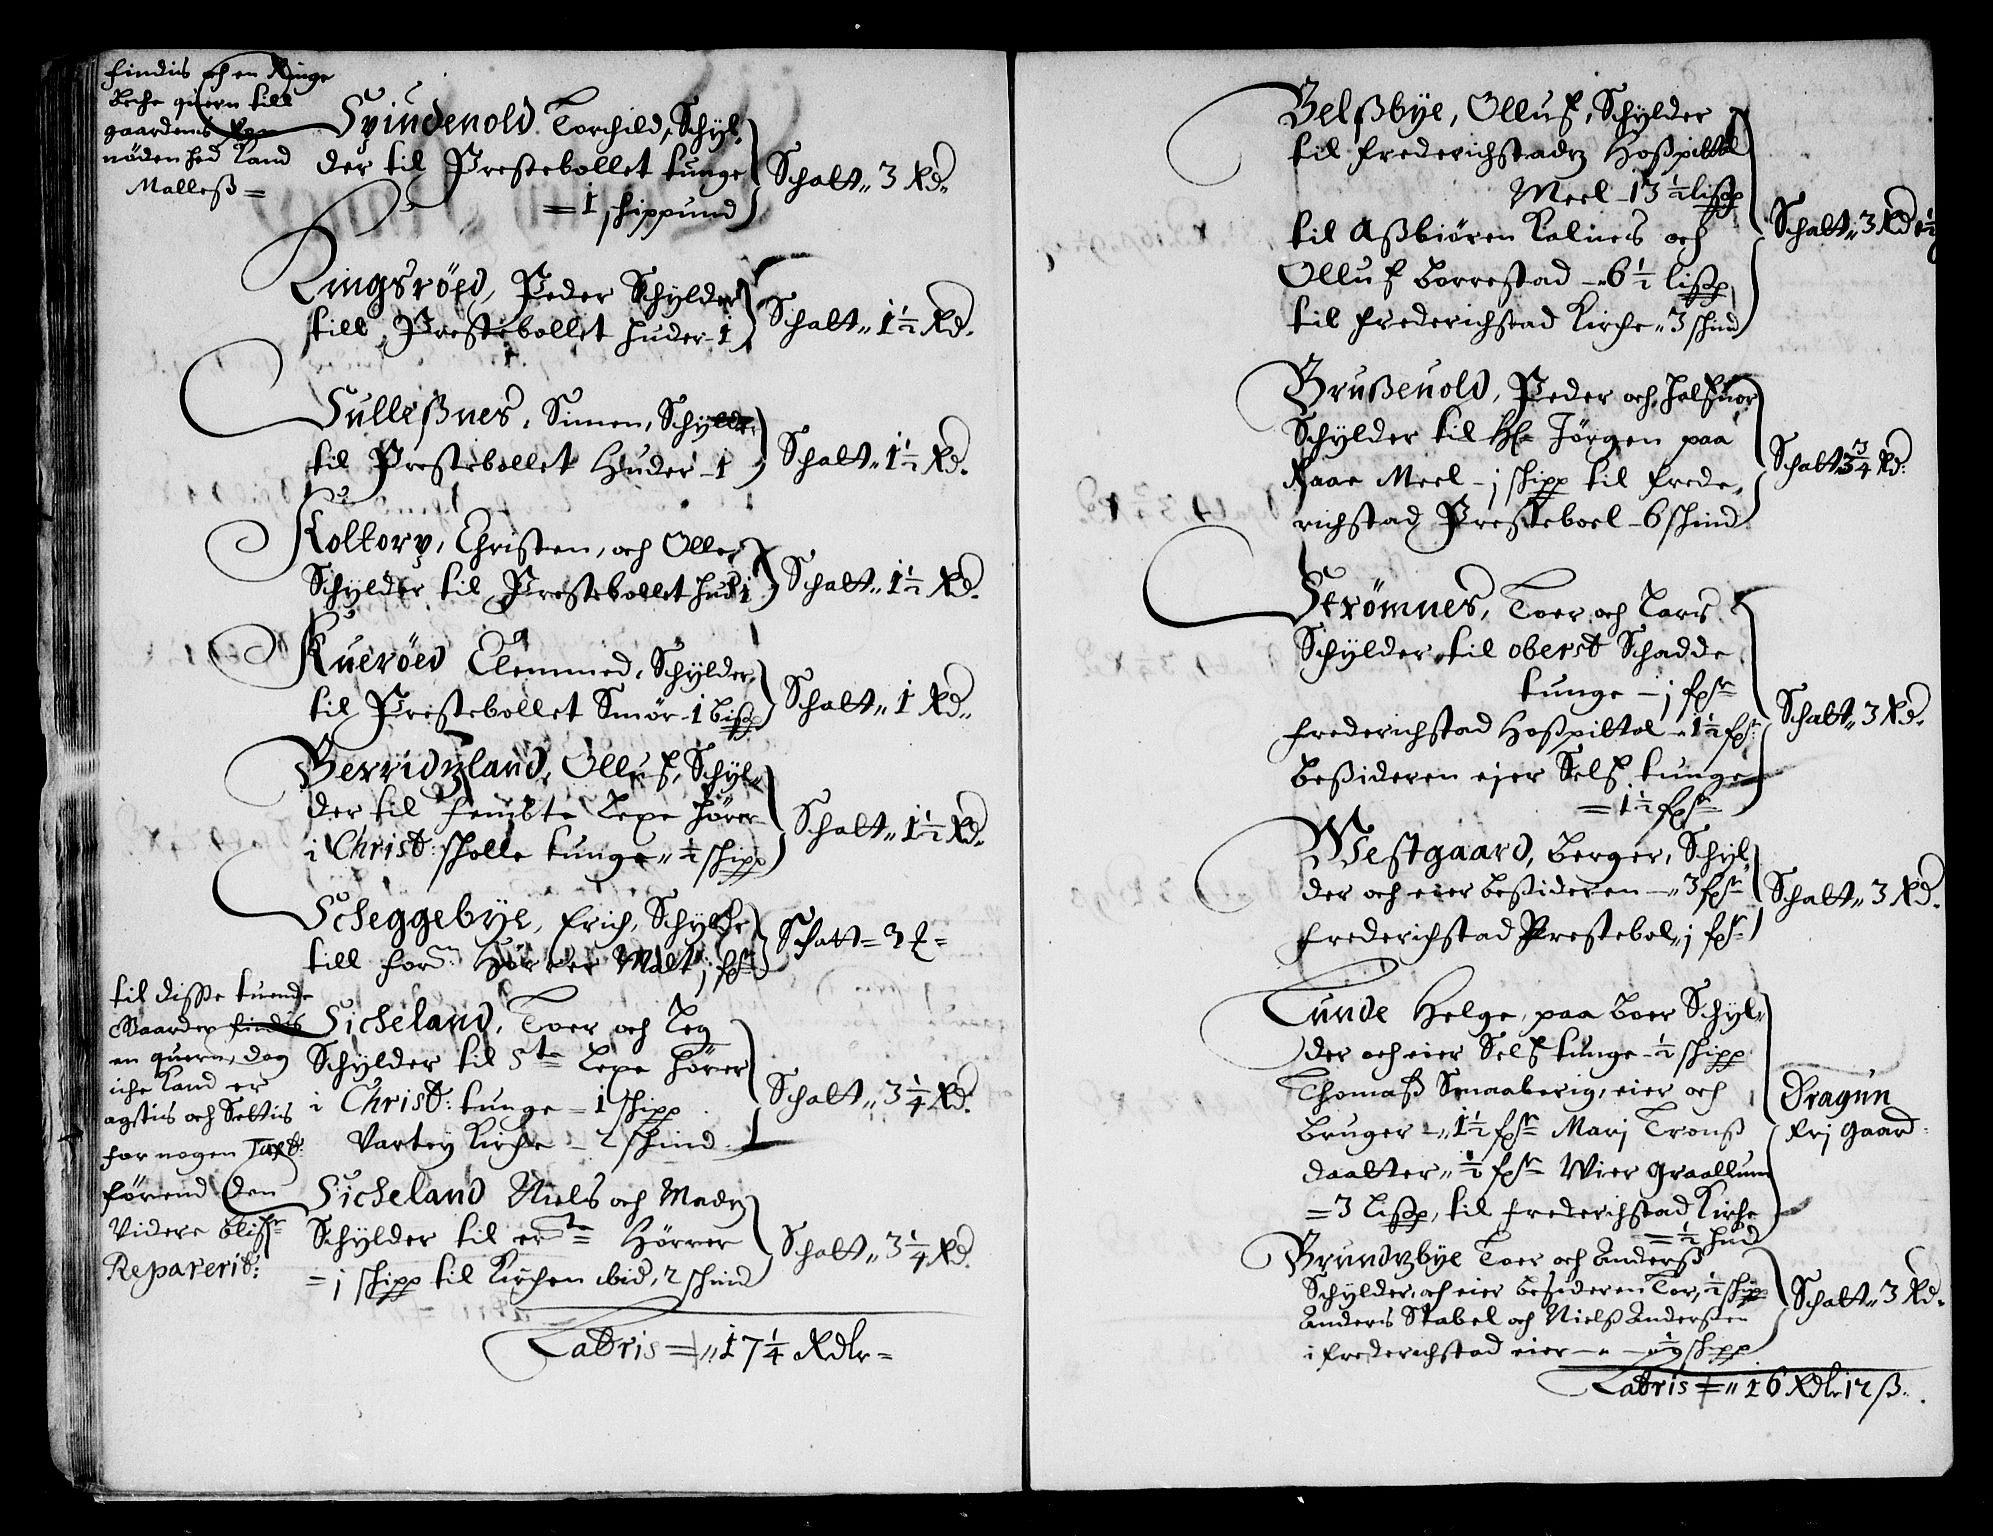 findis och en Ringe
beche quern till
gaardens Egen
nødenhed kand
Malleß =
Svindevold Torchild, Schyl-
der til Prestebollet tunge
= 1 schippund
Schatt 3 Rd.
Ringsrøed, Peder Schylder
till Prestebollet huder - 1
Schatt 1½ Rd.
Sulleßnes, Simen, Schylder
til Prestebollet Huder - 1
Schatt 1½ Rd.
Koltorp, Christen, och Olle
Schylder til Prestebollet hud 1
Schatt 1½ Rd.
Kuerøed Clemmed, Schylder
til Prestebollet Smør - 1 bißp
Schatt 1 Rd.
Berridzland, Olluf, Schyl-
der til fembte Lexe hører
i Christ: scholle tunge ½ schipp
Schatt 1½ Rd.
Scheggebye, Erich, Schylder
till for: Hørrer Malt j fßr
Schatt = 3 t =
til disse tuende
Gaarder findis
en quern, dog
iche kand er
agtis och Settis
for nogen Taxt:
førend den
Videre blifr
Reparerit:
Sicheland, Toer och Leg
Schylder til 5te Lexe hører
i Christ: tunge - 1 schipp
Vartey Kirche - 2 schind
Schatt 3¼ Rd.
Sicheland Niels och Madz
Schylder til erte Hørrer
= j schipp til Kirchen ibid, 2 schind
Schatt 3¼ Rd.
Latris = 17¼ Rdlr =
Velßbye, Olluf, Schylder
til frederichstadz Hoßpittal
Meel - 13½ lißp
til Aßbiøren Kalnes och
Olluf borrestad - 6½ lißp
til frederichstad Kirche 3 schind
Schatt 3 Rd
Brußeuold, Peder och Halfuor
Schylder til Hr Jørgen paa
Raae Meel - j schipp til frede-
richstad Presteboel - 6 schind
Schatt 3¾ Rd.
Strømnes, Toer och Lars
Schylder til oberst Schadde
tunge - j fßr
frederichstad Hoßpittal - 1½ fßr
beßideren eier Self tunge
= 1½ fßr
Schatt 3 Rd.
Westgaard, berger, Schyl-
der och eier beßideren - 3 fßr
frederichstad Prestebol j fßr
Schatt 3 Rd.
Lunde Helge paa boer Schyl-
der och eier Self tunge - ½ schipp
Thomaß Smaaberig, eier och
bruger - 1½ fßr Marj Tronß
daatter ½ fßr Wier graallum
= 3 lißp, til frederichstad Kirche
= ½ hud
Dragun
Frj gaard
Brundzbye Toer och Anderß
Schylder, och eier beßideren Tor, ½ schipp
Anders Stabel och Nielß Anderßen
i frederichstad eier - ½ schipp
Schatt 3 Rd.
Latris = 16 Rdlr 12 ß.